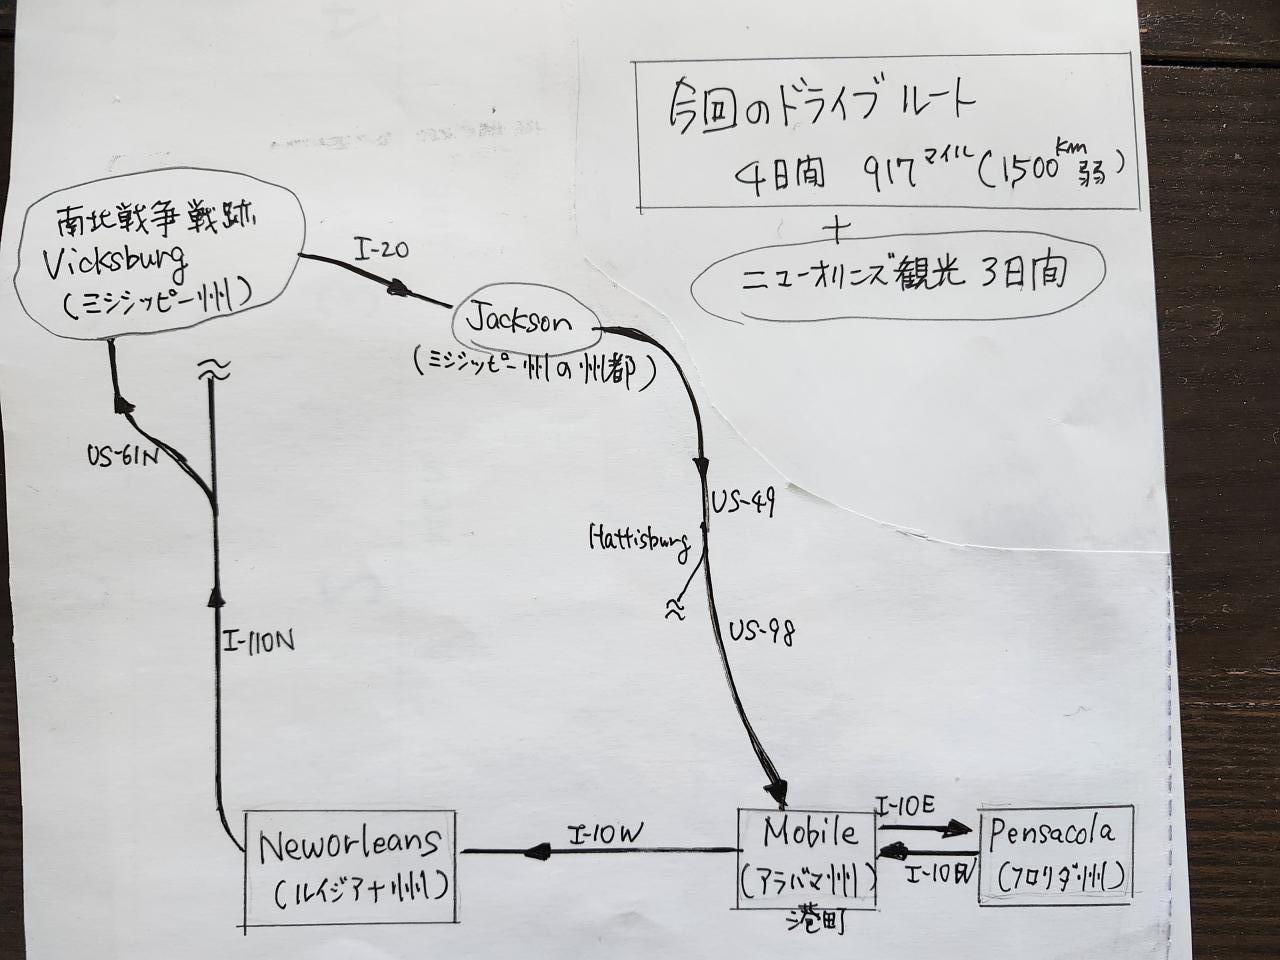 今回のドライブルート
4日間 917マイル(1500km弱)
+
ニューオリンズ観光 3日間
南北戦争戦跡
Vicksburg
(ミシシッピー州)
I-20
Jackson
(ミシシッピー州の州都)
US-61N
US-49
Hattisburg
US-98
I-110N
Neworleans
(ルイジアナ州)
I-10W
Mobile
(アラバマ州)
港町
I-10E
I-10W
Pensacola
(フロリダ州)